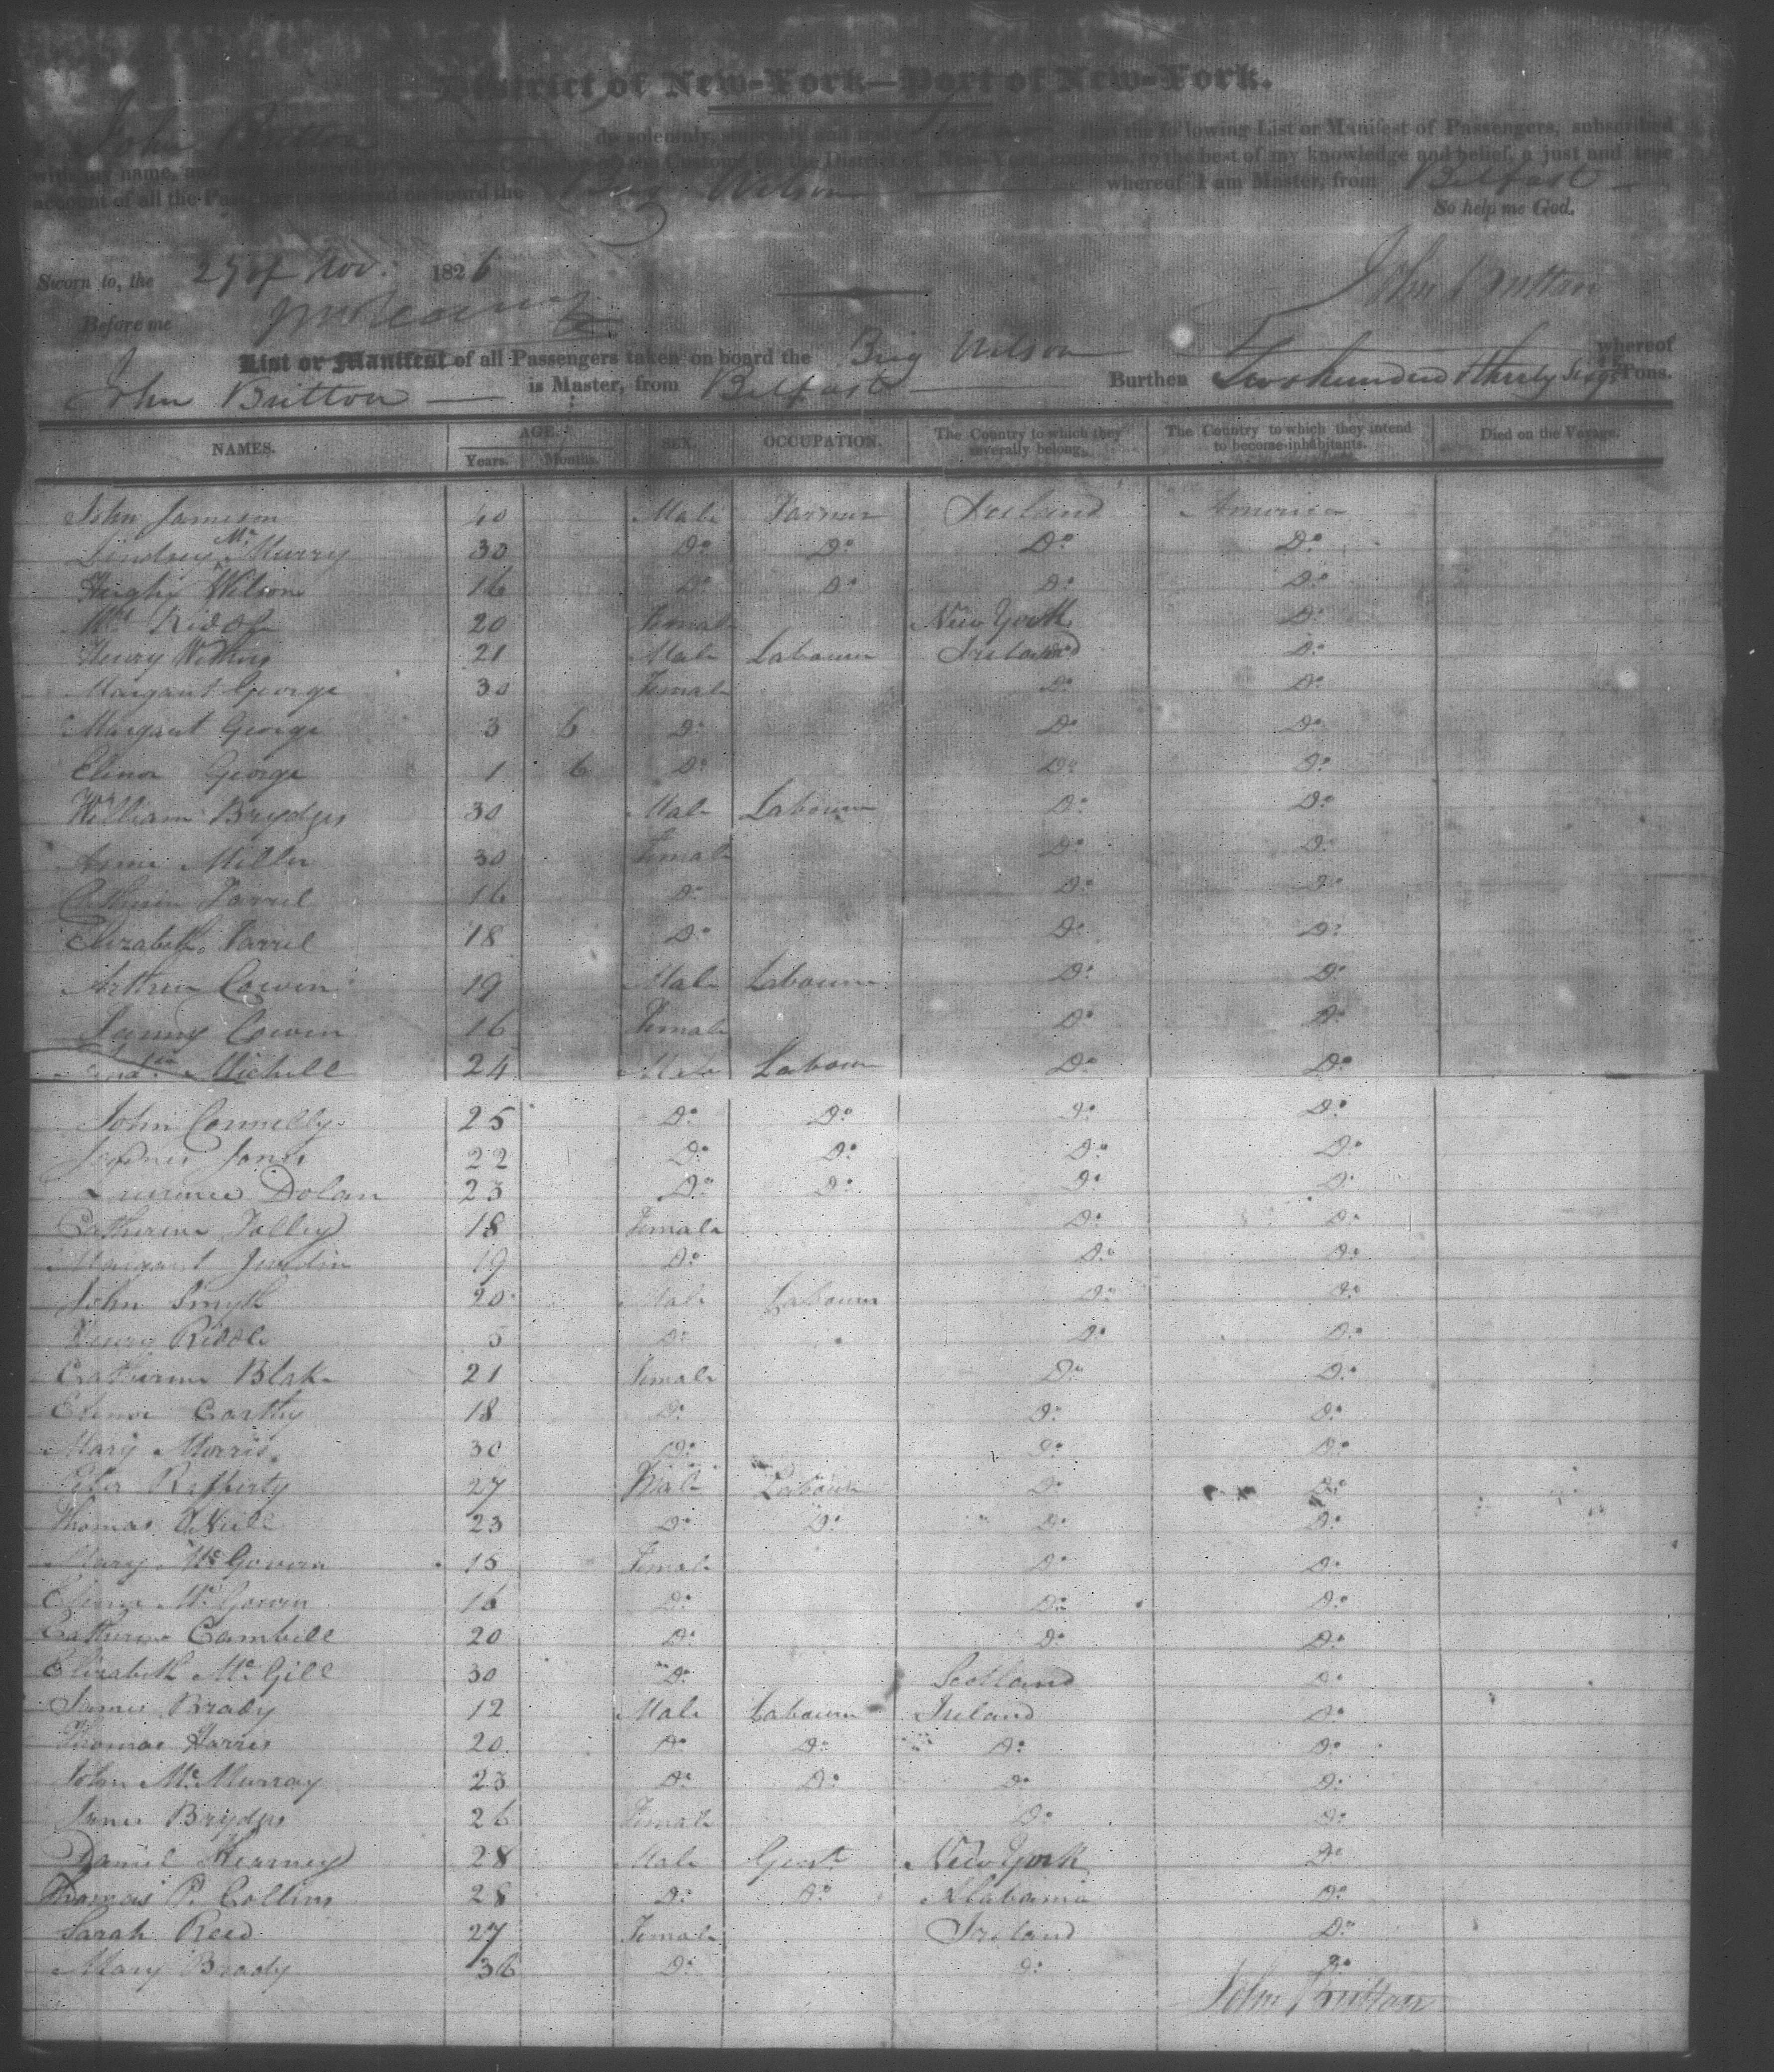 District of New-York—Port of New-York.
John Britton do solemnly, sincerely and truly that the following List or Manifest of Passengers, subscribed
with my name, and Collector of the Customs for the District of New-York, contains, to the best of my knowledge and belief, a just and true
account of all the Passengers on board the Brig Wilson whereof I am Master, from Belfast
So help me God.
Sworn to, the 29 of Nov. 1826 John Britton
Before me
List or Manifest of all Passengers taken on board the Brig Wilson whereof
John Britton is Master, from Belfast Burthen Two hundred & thirty Six Tons.
NAMES. AGE. SEX. OCCUPATION. The Country to which they severally belong. The Country to which they intend to become inhabitants. Died on the Voyage.
Years. Months.
John Jameson 40 Male Farmer Ireland America
Lindsey Mc Murry 30 Do Do Do Do
Hugh Wilson 16 Do Do Do Do
Mrs Riddle 20 Female New York Do
Henry 21 Male Labourer Ireland Do
Margaret George 30 Female Do Do
Margaret George 3 6 Do Do Do
Elinor George 1 6 Do Do Do
William Brydges 30 Male Labourer Do Do
Anne Miller 30 Female Do Do
Catherin Farrel 16 Do Do Do
Elizabeth Farrel 18 Do Do Do
Arthur Cowen 19 Male Labourer Do Do
Cowen 16 Female Do Do
Michell 24 Male Labour Do Do
John Connelly 25 Do Do Do Do
James Jones 22 Do Do Do Do
Dolan 23 Do Do Do Do
Catherine Jolley 18 Female Do Do
Margaret 19 Do Do Do
John Smyth 20 Male Labourer Do Do
Henry Riddle 5 Do Do Do
Catherine Blake 21 Female Do Do
Elinor Carthy 18 Do Do Do
Mary Morris 30 Do Do Do
Peter Rafferty 27 Male Labour Do Do
Thomas O'Neill 23 Do Do Do Do
Mary McGovern 15 Female Do Do
McGovern 16 Do Do Do
Catherine Cambell 20 Do Do Do
Elizabeth McGill 30 Do Scotland Do
James Brady 12 Male Labourer Ireland Do
Thomas Harris 20 Do Do Do Do
John McMurray 23 Do Do Do Do
Brydges 26 Female Do Do
Daniel Kearney 28 Male Gent New York Do
Thomas P. Collins 28 Do Do Alabama Do
Sarah Reed 27 Female Ireland Do
Mary Brady 36 Do Do Do
John Britton